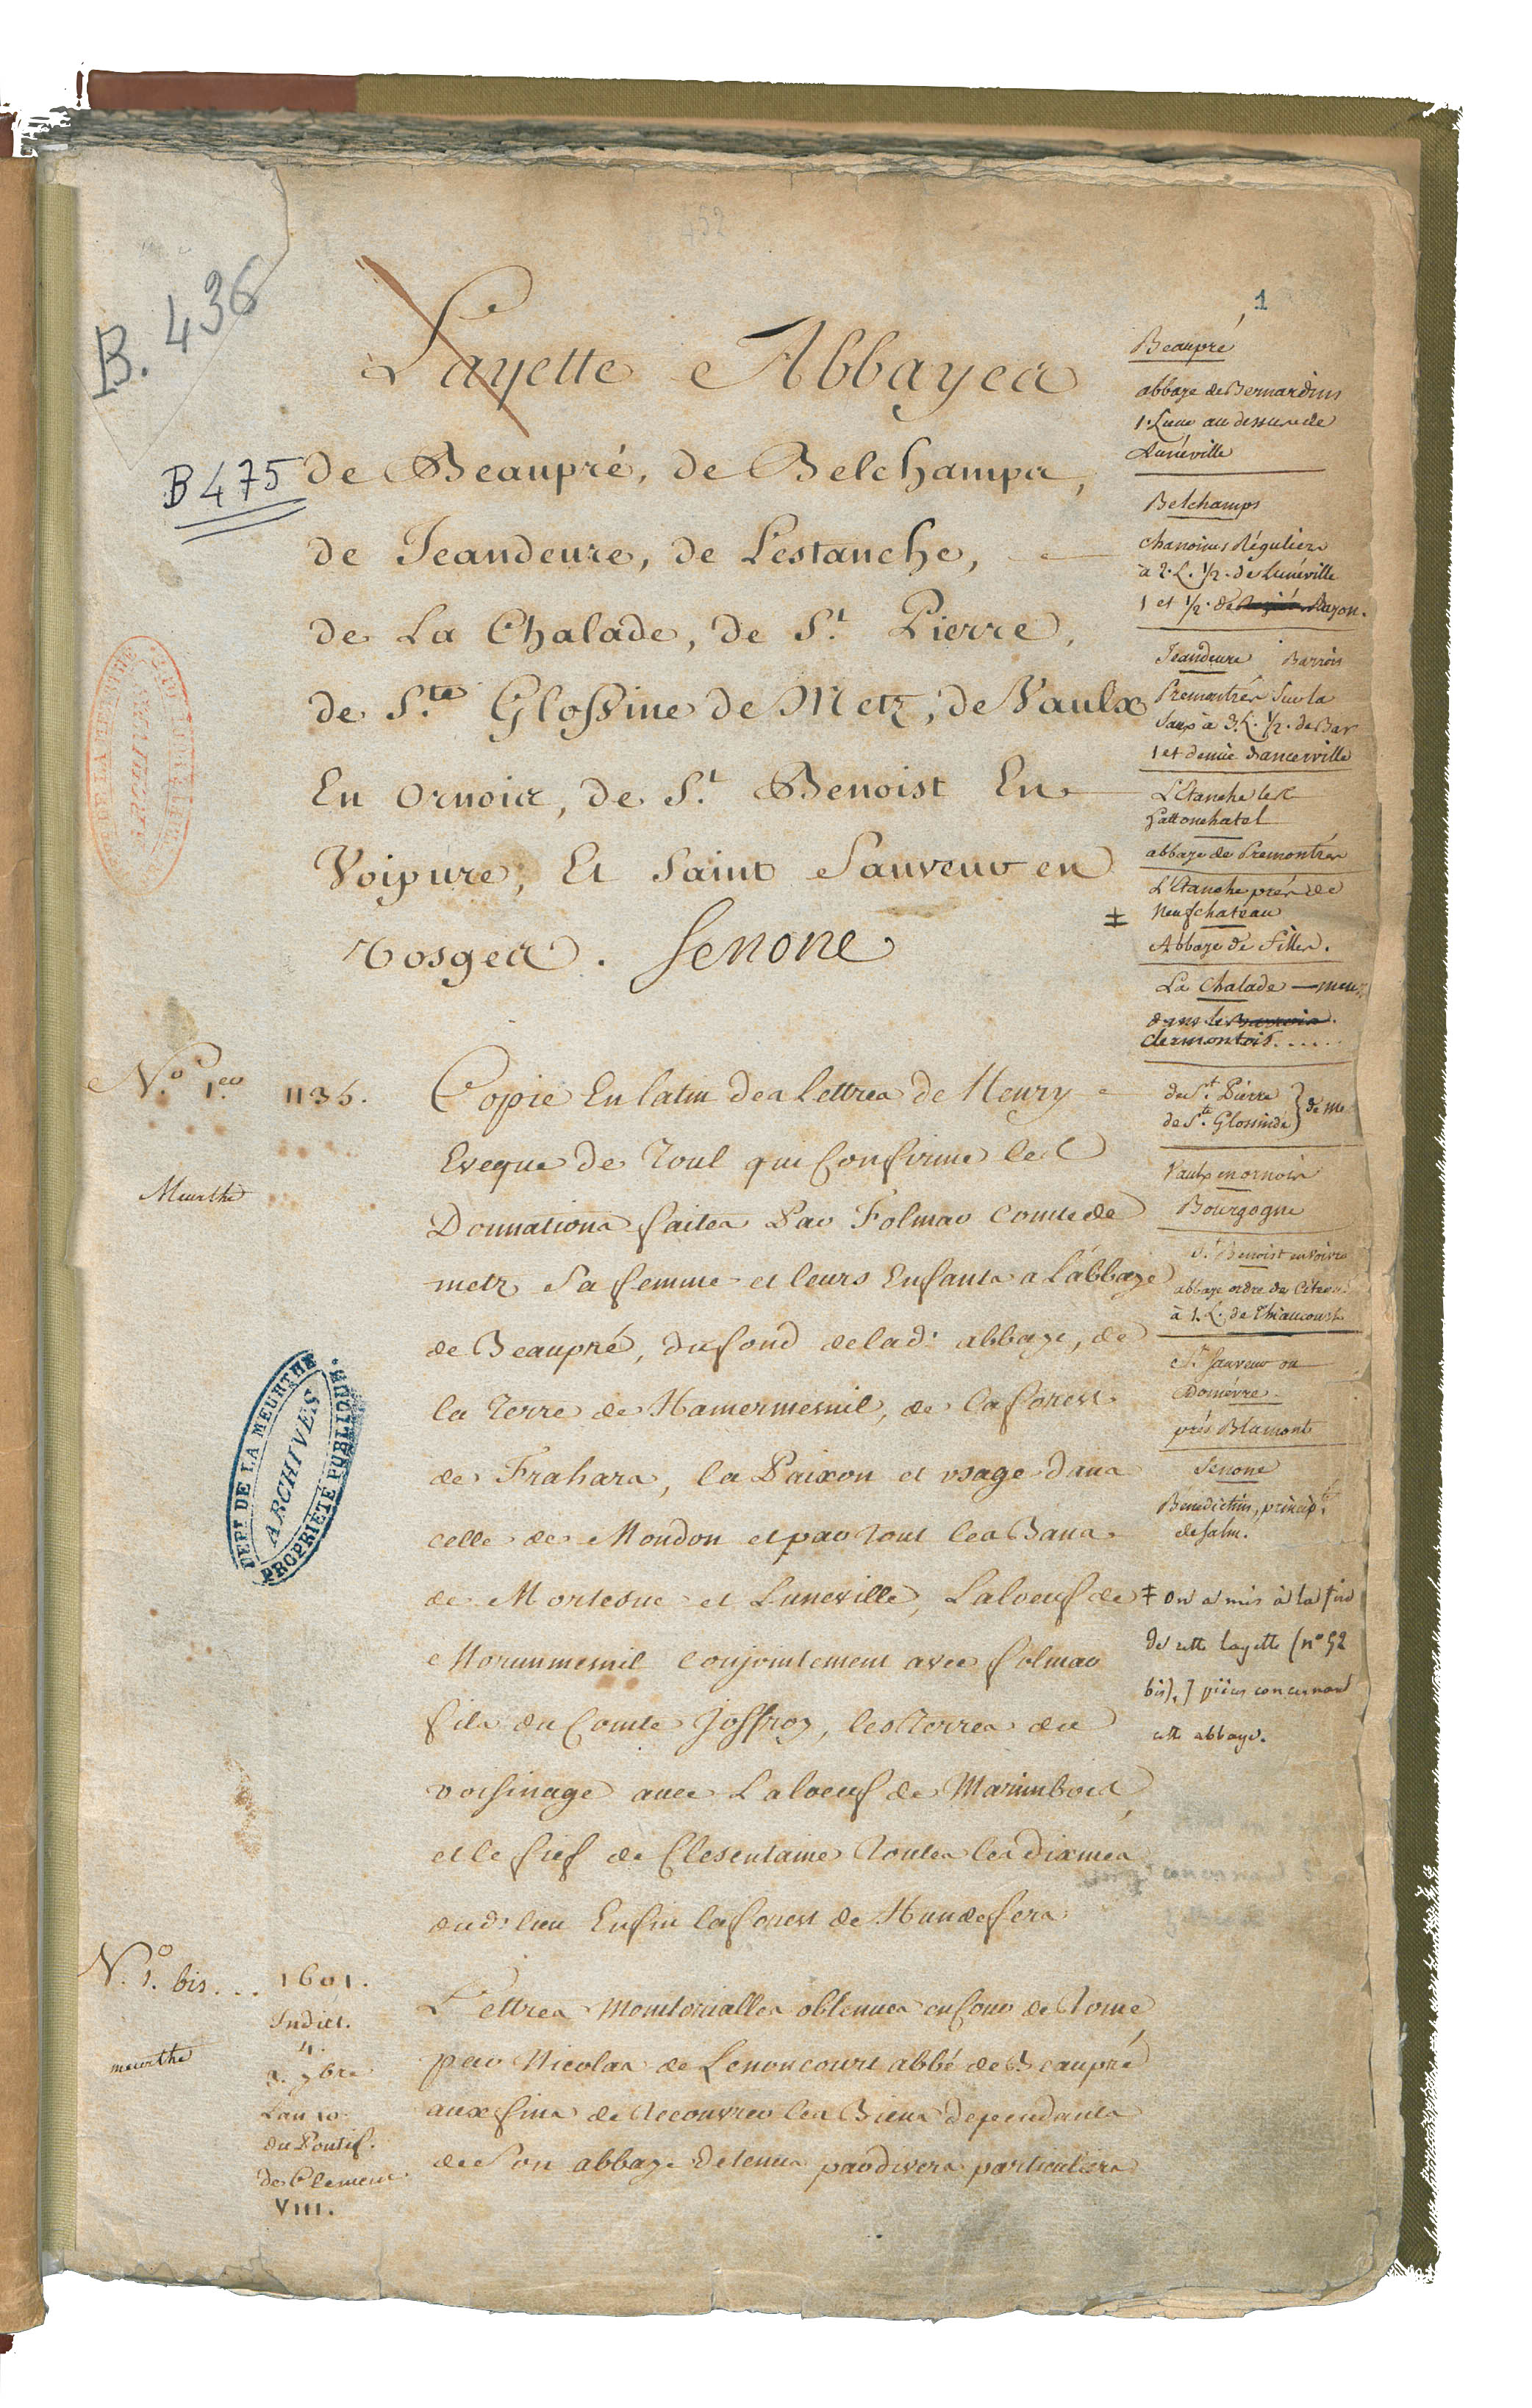 452
1
B. 436
Layette Abbayes
B 475
de Beaupré, de Belchamps,
de Jeandeure, de Lestanche,
de La Chalade, de S.t Pierre,
de S.te Glossine de Metz, de Vaulx
En ornois, de S.t Benoist En
Voipure, Et Saint Sauveur en
Vosges. Senone
Beaupré
abbaye de Bernardins
1. Lieue au dessus de
Lunéville
Belchamps
chanoines Réguliers
à 2. L. 1/2. de Lunéville
1 et 1/2. de Bayon.
Jeandeure Barrois
Premontrés Sur la
Saux à 3. L. 1/2. de Bar
1 et demie d'ancerville
L'Etanche lez
hattonchatel
abbaye de Premontrés
L'Etanche près de
‡ Neufchateau
Abbaye de Filles.
La Chalade — meus
dans le
Clermontois.....
de S.t Pierre
de S.te Glossinde } de Me
Vaulx en ornois
Bourgogne
S.t Benoist en Voivre
abbaye ordre de Citeaux
à 1. L. de Thiaucourt
S.t Sauveur ou
Domèvre.
près Blamont
Senone
Benedictins, princip.té
de Salm.
‡ on a mis à la fin
de cette layette (n° 52
bis), 7 pièces concernant
cette abbaye.
N.o 1.er 1135.
Meurthe
Copie En latin des Lettres de Henry
Eveque de Toul qui Confirme les
Donnations faites Par Folmar Comte de
metz Sa femme et leurs Enfants a L'abbaye
de Beaupré, du fond de lad. abbaye, de
la Terre de Hamermesnil, de la forest
de Frahars, la Paixon et usage dans
celle de Mondon et par tout les Bans
de Mortesne et Luneville, Laloeuf de
Morunmesnil Conjointement avec folmar
fils du Comte Joffroy, les Terres du
voisinage avec Laloeuf de Marimbois,
et le fief de Clesentaine Toutes les dixmes
dud. lieu Enfin la forest de Hundefers
DEPT DE LA MEURTHE
ARCHIVES
PROPRIÉTÉ PUBLIQUE
N.o 1. bis...
meurthe
1601.
Indict.
4.
3. 7bre
L'an 10.
du Pontif.
de Clement
VIII.
Lettres Monitorialles obtenues en Cour de Rome,
par Nicolas de Lenoncourt abbé de Beaupré
aux fins de Recouvrer les Biens dependants
de Son abbaye Detenus par divers particuliers